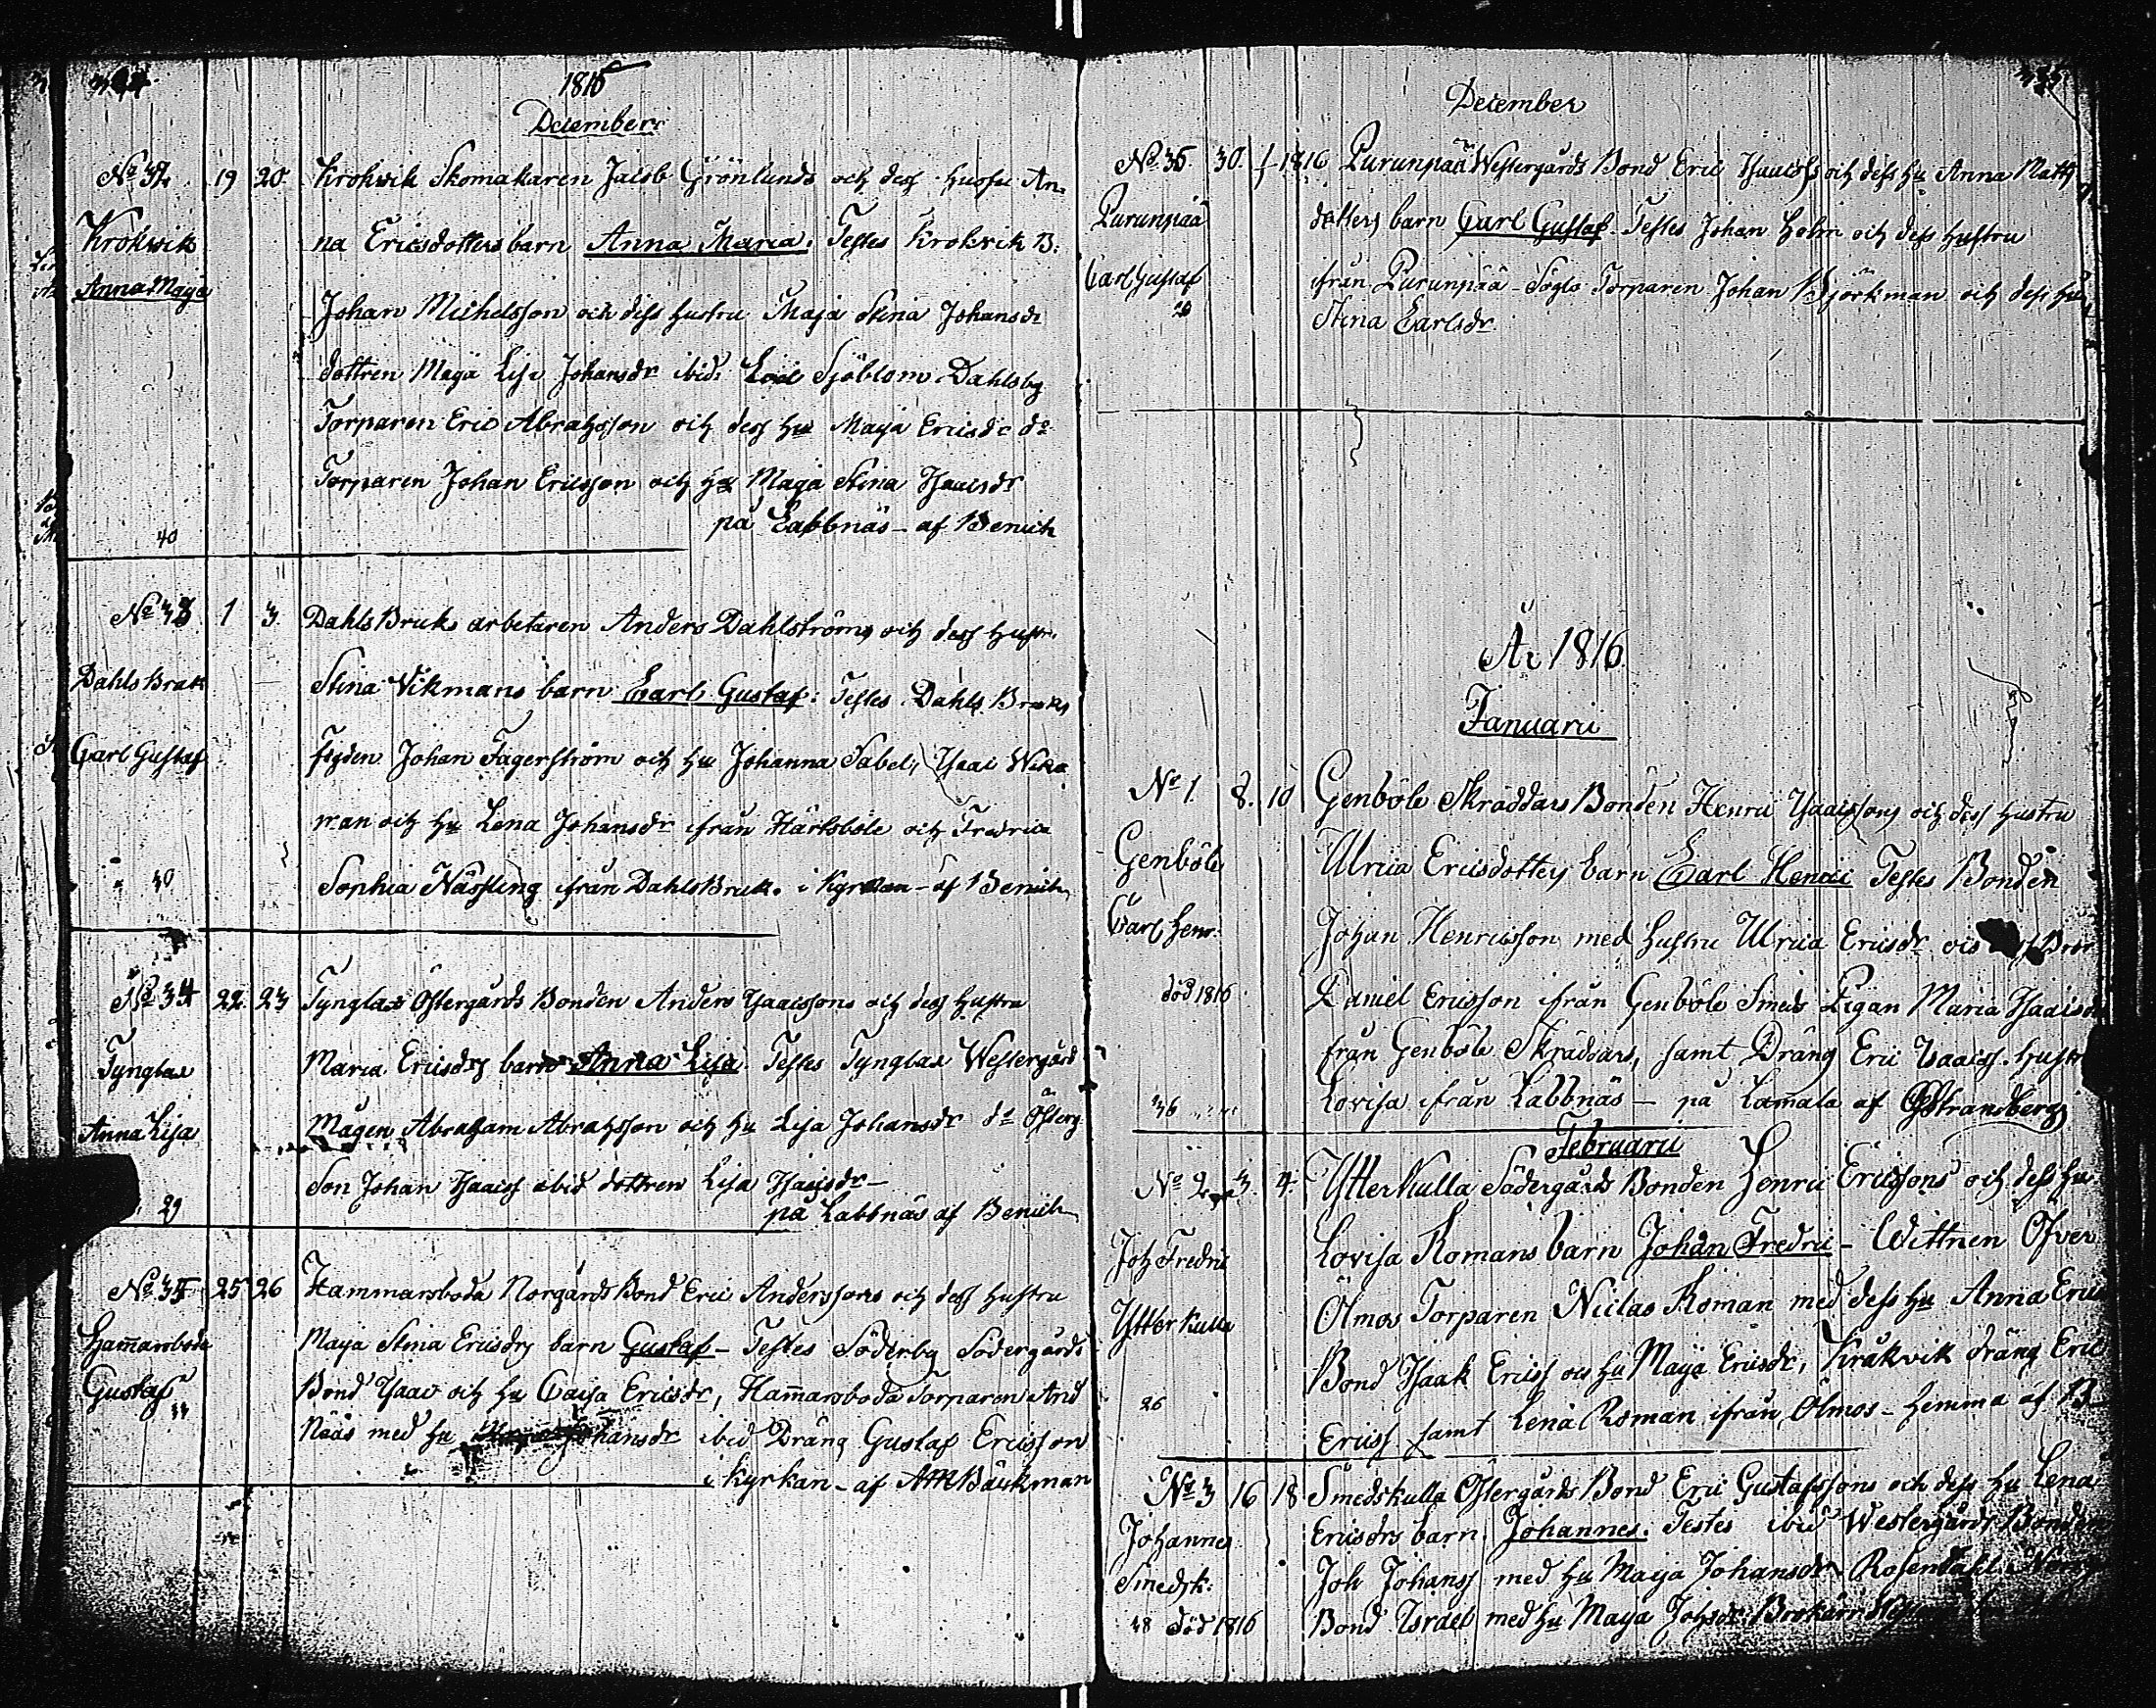 1815
December
No 32. 19 20. Krokvik Skomakaren Jacob Grönlunds och dess hustru An-
Krokvik na Ericsdotters barn Anna Maria. Testes Krokvik B:
Anna Maja Johan Michelsson och dess hustru Maja Stina Johansdr
dottren Maja Lisa Johansdr ibid: Sjöblom Dahlsby
Torparen Eric Abrahsson och dess hu Maja Ericsdr do
Torparen Johan Ericsson och hu Maja Stina Isaacsdr
40 på Labbnäs - af Benich
No 33. 1 3. Dahls Bruks arbetaren Anders Dahlströms och dess hustru
Dahls Bruk Stina Vikmans barn Carl Gustaf: Testes Dahls Bruks
Carl Gustaf Johan Fagerström och hu Johanna Sabel, Isaac Wik-
man och hu Lena Johansdr ifrån Härtsböle och Fredrica
40 Sophia Nässling ifrån Dahls Bruk. i Kyrkan - af Benich
No 34 22. 23 Tynglax Östergårds Bonden Anders Isaacssons och dess hustru
Tynglax Maria Ericsdrs barn Anna Lisa. Testes Tynglax Westergård
Anna Lisa Mågen Abraham Abrahsson och hu Lisa Johansdr do Österg
Son Johan Isaacss ibid dottren Lisa Isaacsdr -
29 på Labbnäs af Benich
No 35 25 26 Hammarsboda Norgårds Bond Eric Anderssons och dess hustru
Hammarsboda Maja Stina Ericsdrs barn Gustaf - Testes Söderby Södergårds
Gustaf Bond Isaac och hu Caisa Ericsdr, Hammarsboda Torparen And
34 Näās med hu Johansdr ibid Dräng Gustaf Ericsson
i Kyrkan - af AM Bäckman
December
No 36. 30. 1 1816 Purunpää Westergårds Bond Eric Isaacss och dess hu Anna Matts
Purunpää dotters barn Carl Gustaf. Testes Johan Holm och dess hustru
Carl Gustaf ifrån Purunpää - Söglo Torparen Johan Björkman och dess hu
29 Stina Carlsdr
År 1816.
Januarii
No 1. 8. 10 Genböle Skräddars Bonden Henric Isaacssons och dess hustru
Genböle Ulrica Ericsdotters barn Carl Henric Testes Bonden
Carl Henr. Johan Henricsson med hustru Ulrica Ericsdr
död 1816 Daniel Ericsson ifrån Genböle Smeds Pigan Maria Isaacsdr
från Genböle Skräddars, samt Dräng Eric Isaacss. hustru
36 Lovisa ifrån Labbnäs - på Lammala af Strandberg
Februarii
No 2 3. 4. Ytterkulla Södergårds Bonden Henric Ericssons och dess hu
Joh Fredric Lovisa Romans barn Johan Fredric - Wittnen Öfver
Ytterkulla Ölmos Torparen Niclas Roman med dess hu Anna Erics
Bond Isaak Ericss och hu Maja Ericsdr, Kråkvik dräng Eric
26 Ericss samt Lena Roman ifrån Ölmos - hemma af B
No 3 16 18 Smedskulla Östergårds Bond Eric Gustafssons och dess hu Lena
Johannes Ericsdrs barn. Johannes. Testes ibid Westergårds Bonden
Smedsk: Joh Johanss med hu Maja Johansdr - Rosendahl
38 död 1816 Bond Israel med hu Maja Johsdr Brokärr